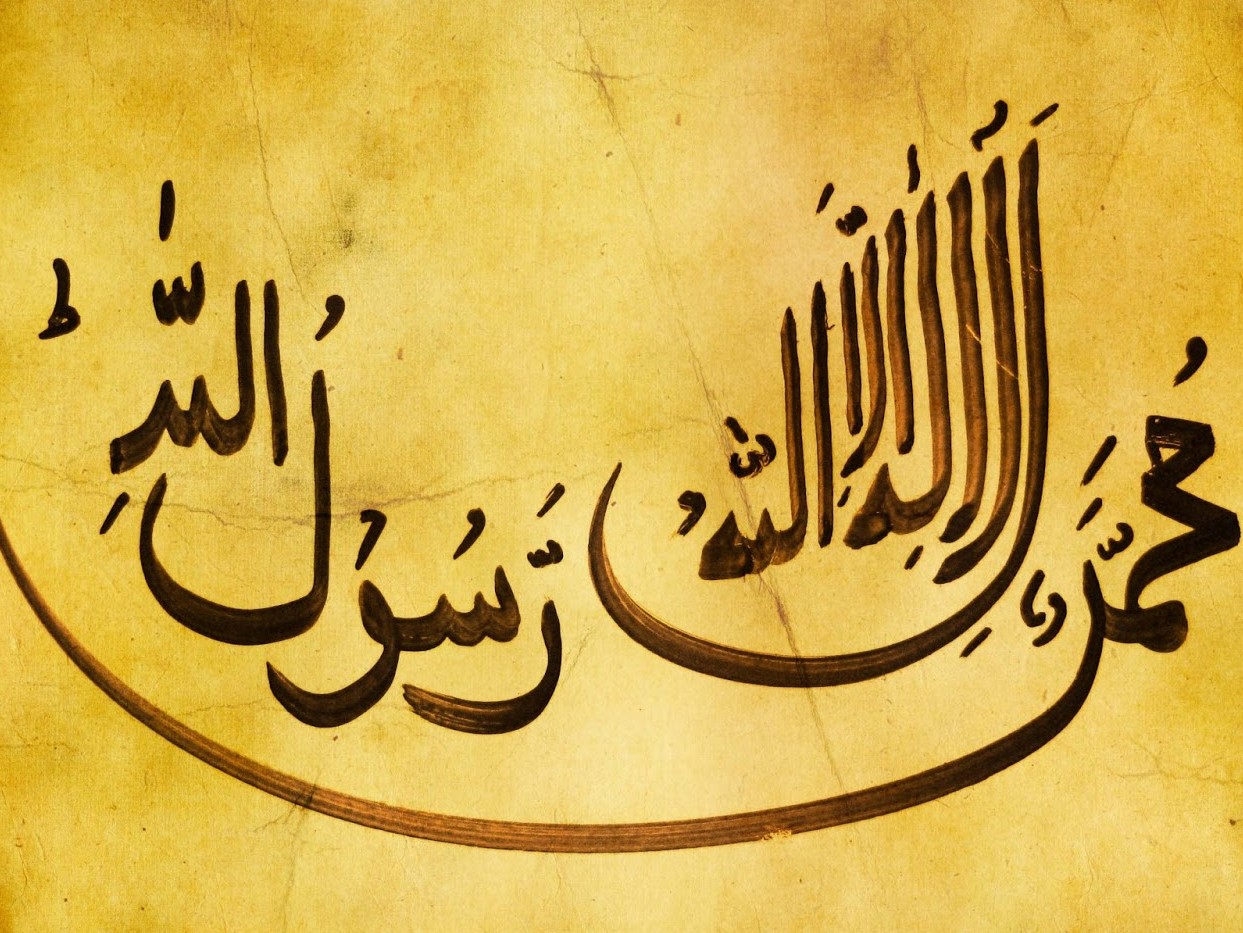 لَا إِلٰهَ إِلَّا اللّٰهُ
مُحَمَّدٌ رَّسُولُ اللّٰهِ